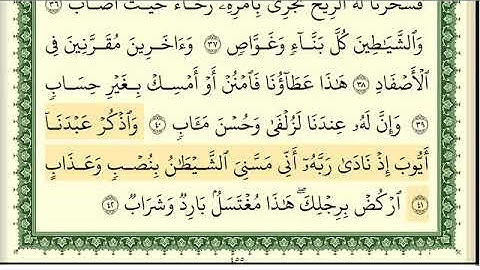 فَسَخَّرْنَا لَهُ ٱلرِّيحَ تَجْرِى بِأَمْرِهِۦ رُخَآءً حَيْثُ أَصَابَ ٣٦
وَٱلشَّيَٰطِينَ كُلَّ بَنَّآءٍ وَغَوَّاصٍ ٣٧ وَءَاخَرِينَ مُقَرَّنِينَ فِى
ٱلْأَصْفَادِ ٣٨ هَٰذَا عَطَآؤُنَا فَٱمْنُنْ أَوْ أَمْسِكْ بِغَيْرِ حِسَابٍ
٣٩ وَإِنَّ لَهُۥ عِندَنَا لَزُلْفَىٰ وَحُسْنَ مَـَٔابٍ ٤٠ وَٱذْكُرْ عَبْدَنَآ
أَيُّوبَ إِذْ نَادَىٰ رَبَّهُۥٓ أَنِّى مَسَّنِىَ ٱلشَّيْطَٰنُ بِنُصْبٍ وَعَذَابٍ
٤١ ٱرْكُضْ بِرِجْلِكَ ۖ هَٰذَا مُغْتَسَلٌۢ بَارِدٌ وَشَرَابٌ ٤٢
٤٥٥